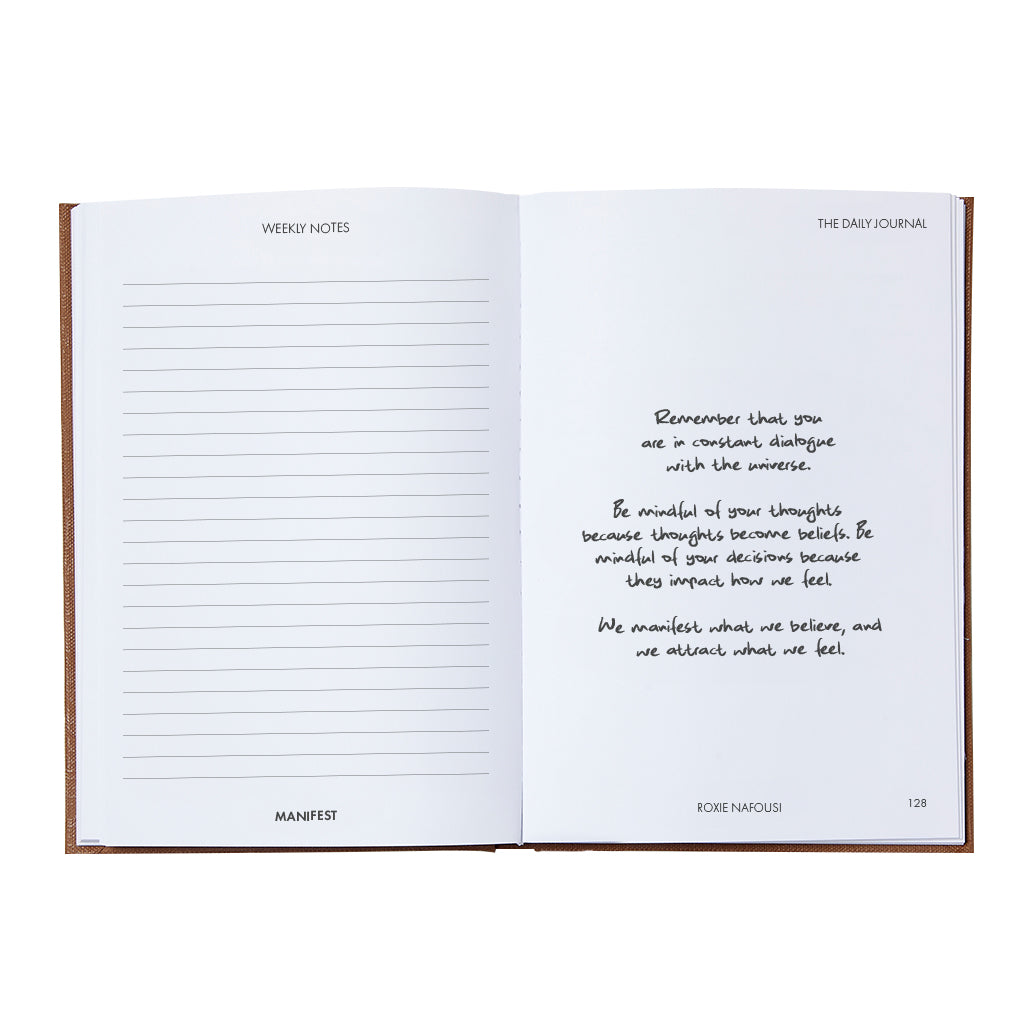 WEEKLY NOTES
MANIFEST
THE DAILY JOURNAL
Remember that you
are in constant dialogue
with the universe.
Be mindful of your thoughts
because thoughts become beliefs. Be
mindful of your decisions because
they impact how we feel.
We manifest what we believe, and
we attract what we feel.
ROXIE NAFOUSI
128